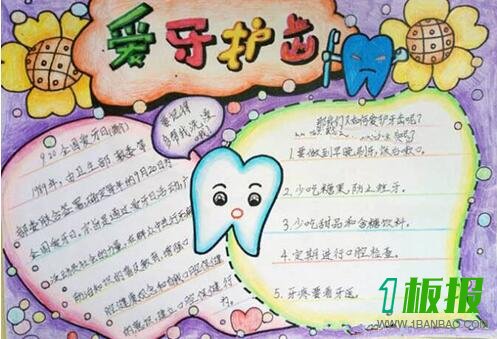 爱牙护齿
要记得
多帮我洗澡
哦！
9.20全国爱牙日
1989年，由卫生部、教委等
部委联合签署，确定每年的9月20日为
全国爱牙日，
动员社会的力量，在群众中进行
防治知识的普及教育，增强口
腔健康观念和自我口腔保健
的意识，建立口腔保健行
为。
那我们又如何爱护牙齿呢？
1.要做到早晚刷牙，饭后漱口。
2.少吃糖果，防止蛀牙。
3.少吃甜品和含糖饮料。
4.定期进行口腔检查。
5.牙疼要看牙医。
1板报
WWW.1BANBAO.COM